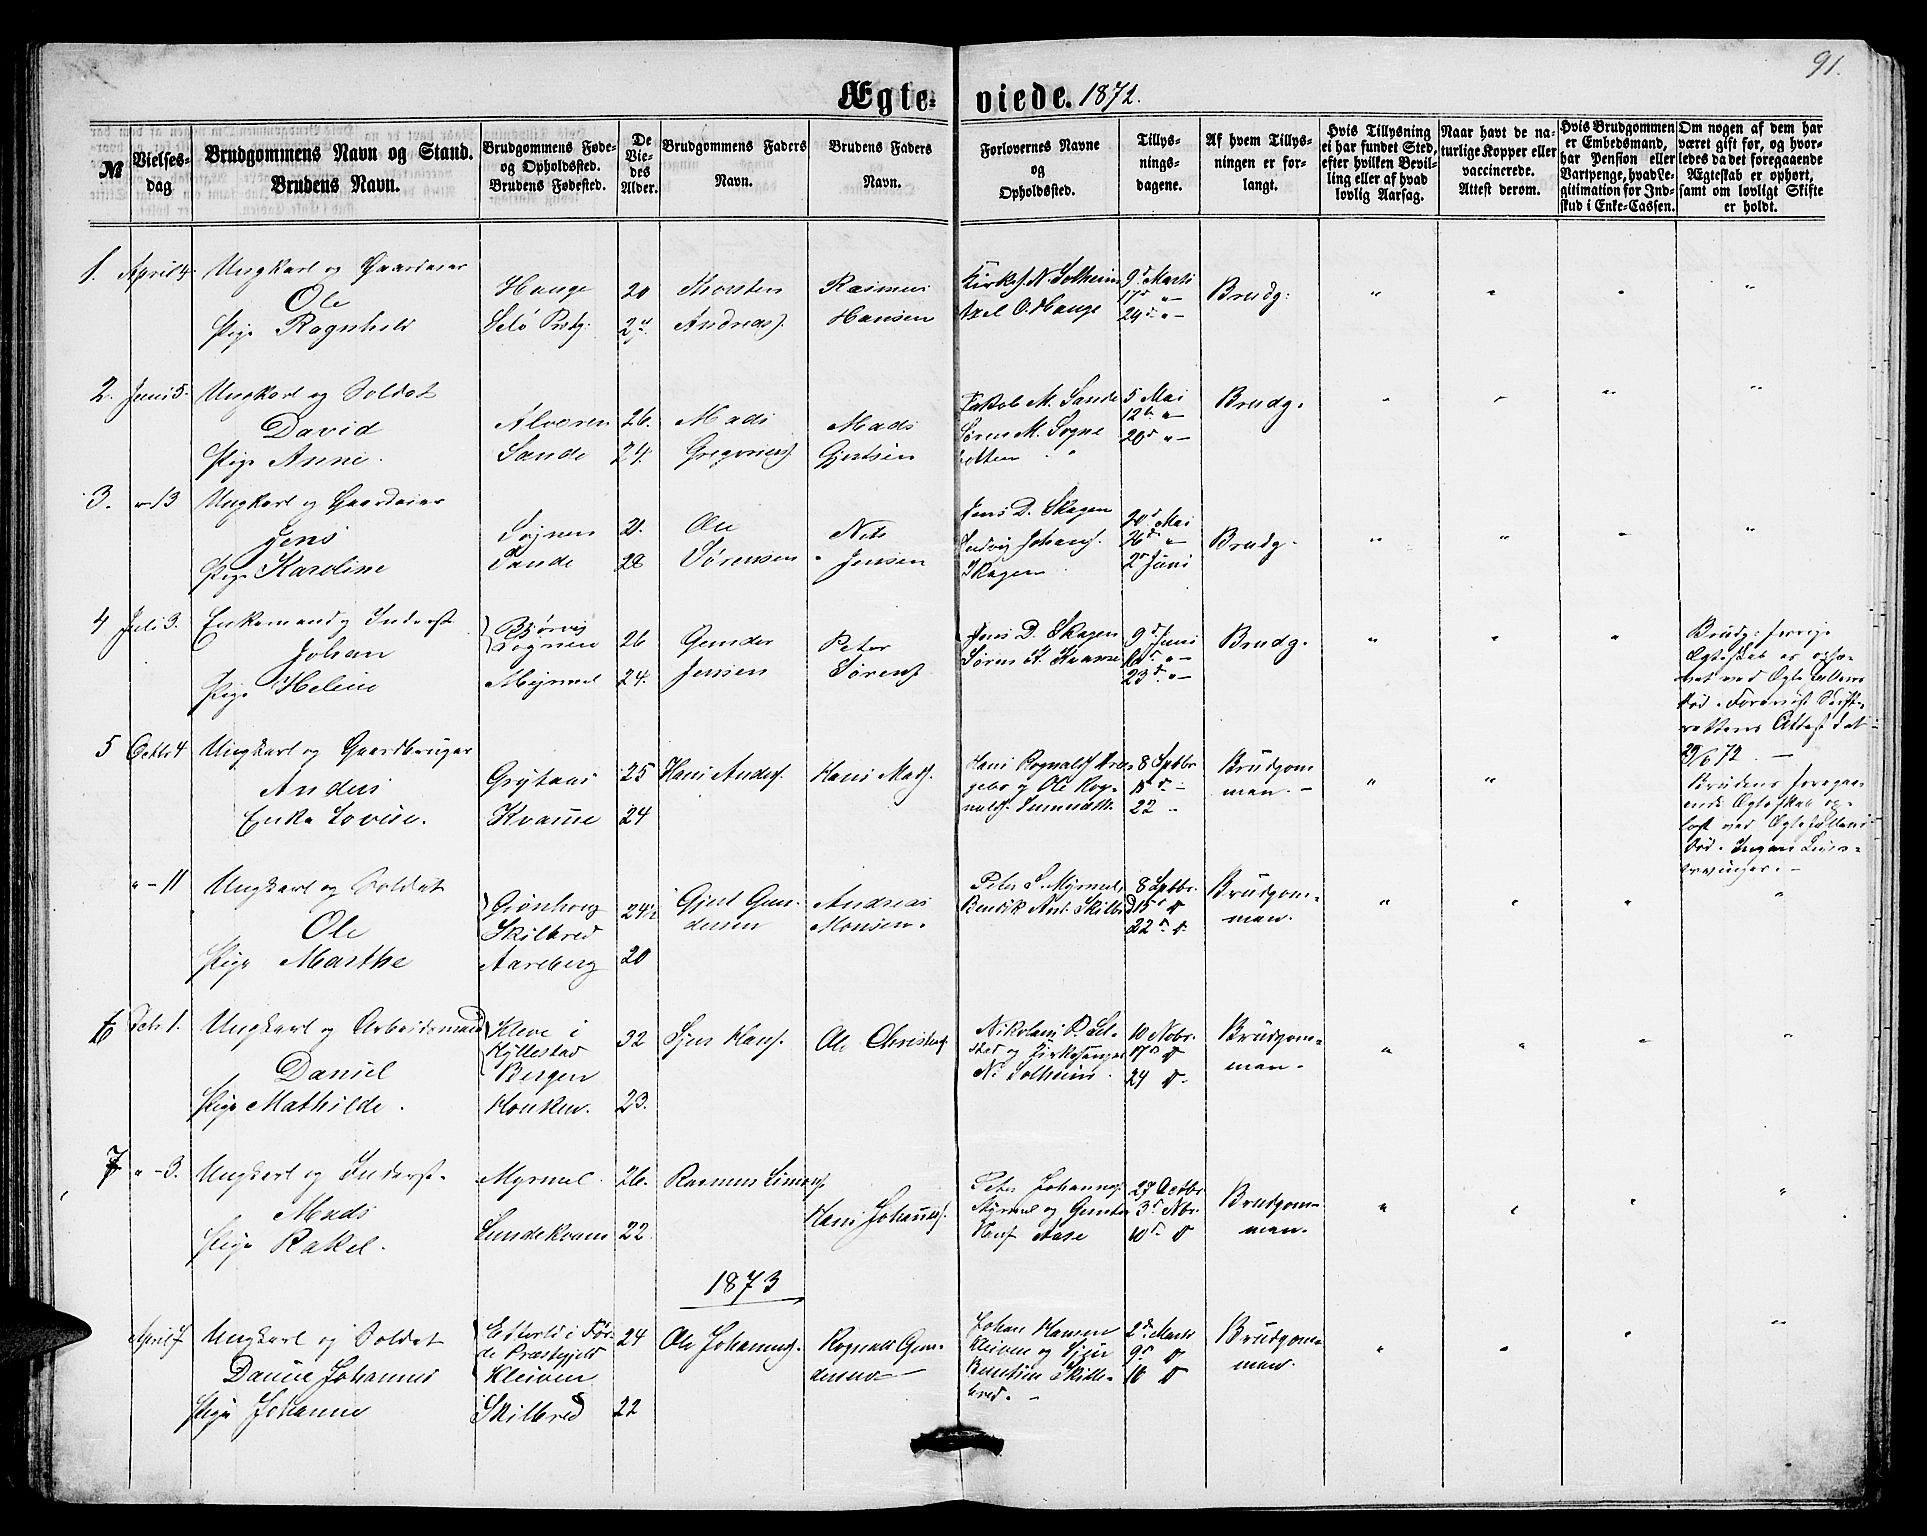 91.
Ægte- viede. 1872.
№
Vielses-
dag
Brudgommens Navn og Stand.
Brudens Navn.
Brudgommens Føde-
og Opholdssted.
Brudens Fødested.
De
Vie-
des
Alder.
Brudgommens Faders
Navn.
Brudens Faders
Navn.
Forlovernes Navne
og
Opholdssted.
Tillys-
nings-
dagene.
Af hvem Tillys-
ningen er for-
langt.
Hvis Tillysning
ei har fundet Sted,
efter hvilken Bevil-
ling eller af hvad
lovlig Aarsag.
Naar havt de na-
turlige Kopper eller
vaccinerede.
Attest derom.
Hvis Brudgommen
er Embedsmand,
har Pension eller
Vartpenge, hvad Le-
gitimation for Ind-
skud i Enke-Cassen.
Om nogen af dem har
været gift før, og hvor-
ledes da det foregaaende
Ægteskab er ophørt,
samt om lovligt Skifte
er holdt.
1. April 4. Ungkarl og Gaardeier
Ole
Pige Ragnhild
Hauge
Selö Prstg:
20
Thorsten
Andreas.
Rasmus
Hansen
Kirkes. N. Solheim
Axel O. Hauge
9d Marti
17d "-
24d "-
Brudg:
2. Juni 5. Ungkarl og Soldat
David
Pige Anne.
Alveren
Sande
26.
24.
Mads
Gregorius.
Mads
Gjertsen
Jakob M. Sande
Søren M. Sogne
5 Mai
12d "-
20d "-
Brudg.
3. "-13 Ungkarl og Gaardeier
Jens
Pige Karoline
Sognen
Sande
Ole
Sørensen
Nils
Jensen
Jens D. Skagen
Ludvig Johans.
Skagen
20d Mai
26d "-
2d Juni
Brudg.
4 Juli 3. Enkemand og Inderst
Johan
Pige Helene
Sognen
Myrmel
26
24.
Gunder
Jensen
Peter
Sørens.
Jens D. Skagen
Søren K. Kvame
9d Juni
16d "-
23d "-
Brudg.
Brudg: forrige
Ægteskab er ophø-
ret ved Ægtefællens
Død. Foreviist Skift-
rettens Attest dat
29/6 72. -
5 Octbr 4 Ungkarl og Gaardbruger
Anders
Enke Lovise.
Grytaas
Kvame
25
24
Hans Anders.
Hans Mads.
8 Septbr
15d -
22 -
Brudgom-
man. -
Brudens foregaa-
ende Ægteskab op-
løst ved Ægtefællens
Død. Ingen Livs-
arvinger. -
"-11 Ungkarl og Soldat
Ole
Pige Marthe
Grönberg
Skilbred
Aareberg
24½
20
Gjert Gun-
dersen
Andreas
Monsen.
Peter S. Myrmel,
Bendik Ant. Skilbred
8 Septbr.
15d
22d
Brudgom-
man.
6 Octb 1. Ungkarl og Arbeidsmand
Daniel
Pige Mathilde.
Kleve i
Hyllestad
Bergen
32
23.
Sjur Hans.
Ole Christens.
og Kirkesanger
N. Solheim.
10 Nobr.
17d
24
Brudgom-
man.
7 "-3. Ungkarl og Inderst.
Mads
Pige Rakel.
Myrmel
Sandekvam
26.
22.
Rasmus Simons.
Hans Johannes.
Peter Johannes.
Myrmel og Gunder
Hans. Aase
27 Octbr
3d Nobr.
10d
Brudgom-
man.
1873
April 7 Ungkarl og Soldat
Daniel Johannes
Pige Johanne
i För-
de Præstegjeld
Kleiven
Skilbred
24
22
Ole Johannes.
Rognald Gun-
dersen
Johan Hansen
Kleiven og Sjur
Bentsen Skille-
bred. -
2d Marts
9d
16
Brudgom-
man.